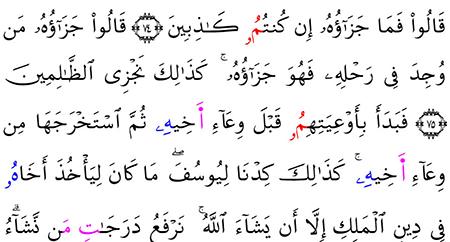 قَالُوا۟ فَمَا جَزَٰٓؤُهُۥٓ إِن كُنتُمُۥ كَـٰذِبِينَ ﴿٧٤﴾ قَالُوا۟ جَزَٰٓؤُهُۥ مَن
وُجِدَ فِى رَحْلِهِۦ فَهُوَ جَزَٰٓؤُهُۥ ۚ كَذَٰلِكَ نَجْزِى ٱلظَّـٰلِمِينَ
﴿٧٥﴾ فَبَدَأَ بِأَوْعِيَتِهِمُۥ قَبْلَ وِعَآءِ أَخِيهِۦ ثُمَّ ٱسْتَخْرَجَهَا مِن
وِعَآءِ أَخِيهِۦ ۚ كَذَٰلِكَ كِدْنَا لِيُوسُفَ ۖ مَا كَانَ لِيَأْخُذَ أَخَاهُۥ
فِى دِينِ ٱلْمَلِكِ إِلَّآ أَن يَشَآءَ ٱللَّهُ ۚ نَرْفَعُ دَرَجَـٰتِ مَن نَّشَآءُ ۗ